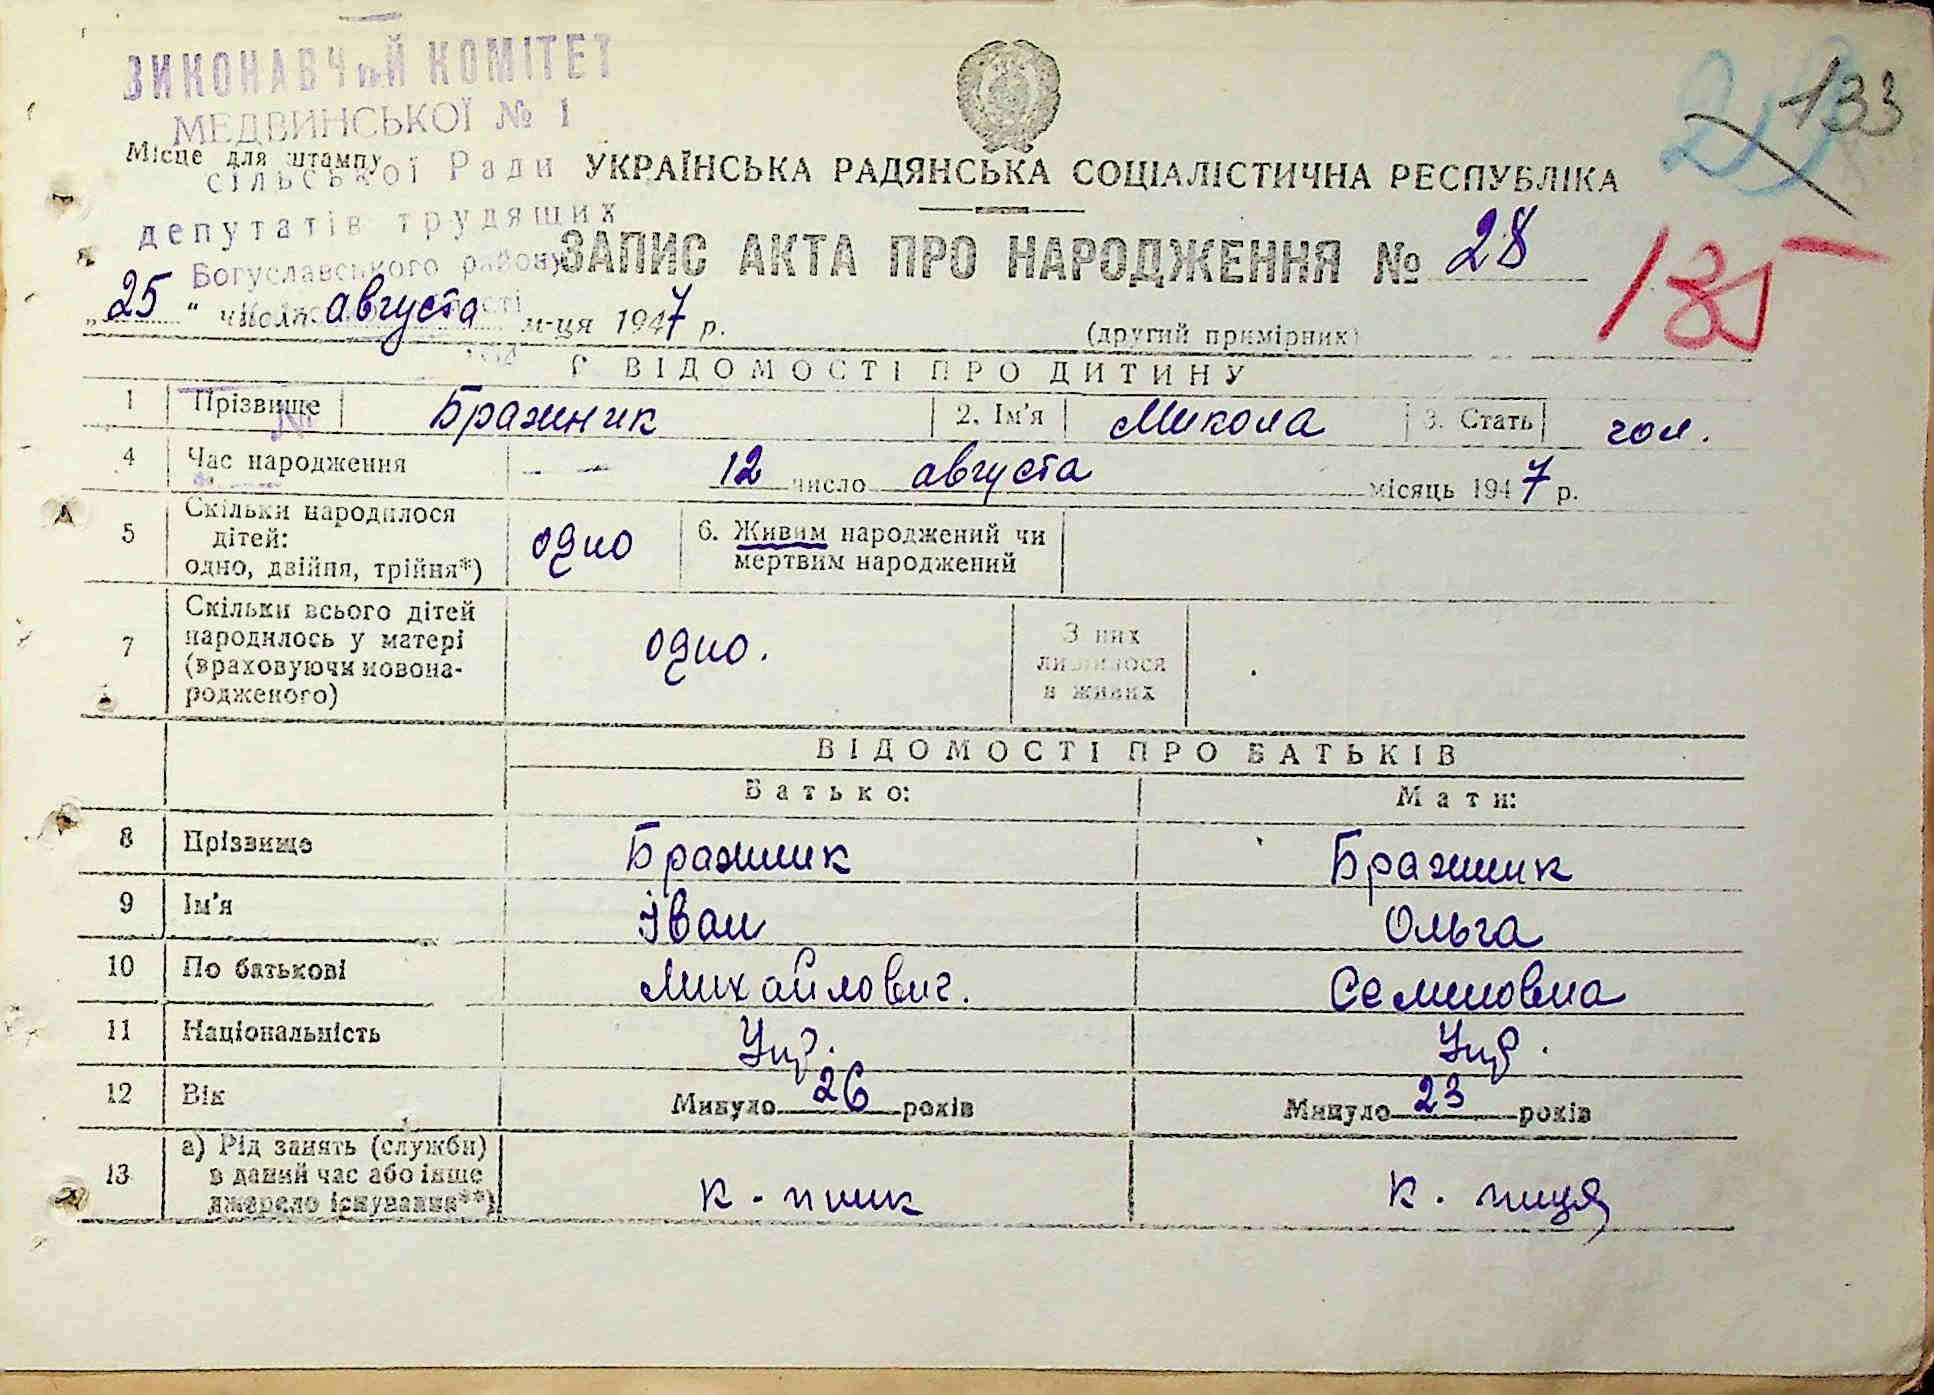 ВИКОНАВЧИЙ КОМІТЕТ
МЕДВИНСЬКОЇ № 1
Місце для штампу
сільської Ради
депутатів трудящих
Богуславського району
133
135
УКРАЇНСЬКА РАДЯНСЬКА СОЦІАЛІСТИЧНА РЕСПУБЛІКА
ЗАПИС АКТА ПРО НАРОДЖЕННЯ № 28
„25" числа августа м-ця 1947 р.
(другий примірник)
ВІДОМОСТІ ПРО ДИТИНУ
1 Прізвище Бражник 2. Ім'я Микола 3. Стать чол.
4 Час народження — — 12 число августа місяць 1947 р.
5 Скільки народилося
дітей:
одно, двійня, трійня*) одно
6. Живим народжений чи
мертвим народжений
7 Скільки всього дітей
народилось у матері
(враховуючи новона-
родженого) одно.
З них
лишилося
в живих
ВІДОМОСТІ ПРО БАТЬКІВ
Батько: Мати:
8 Прізвище Бражник Бражник
9 Ім'я Іван Ольга
10 По батькові Михайлович. Семеновна
11 Національність Укр. Укр.
12 Вік Минуло 26 років Минуло 23 років
13 а) Рід занять (служби)
в даний час або інше
джерело існування**) к-пник к-пиця